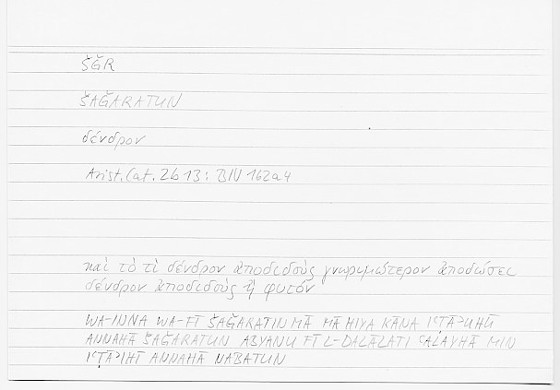 ŠǦR
ŠAǦARATUN
δένδρον
Arist. Cat. 2b13: BIU 162a4
καὶ τὸ τὶ δένδρον ἀποδιδοὺς γνωριμώτερον ἀποδώσει
δένδρον ἀποδιδοὺς ἢ φυτόν
WA-INNA WA-FĪ ŠAǦARATIN MĀ MĀ HIYA KĀNA IʿṬĀʾUHŪ
ANNAHĀ ŠAǦARATUN ABYANU FĪ L-DALĀLATI ʿALAYHĀ MIN
IʿṬĀʾIHĪ ANNAHĀ NABATUN